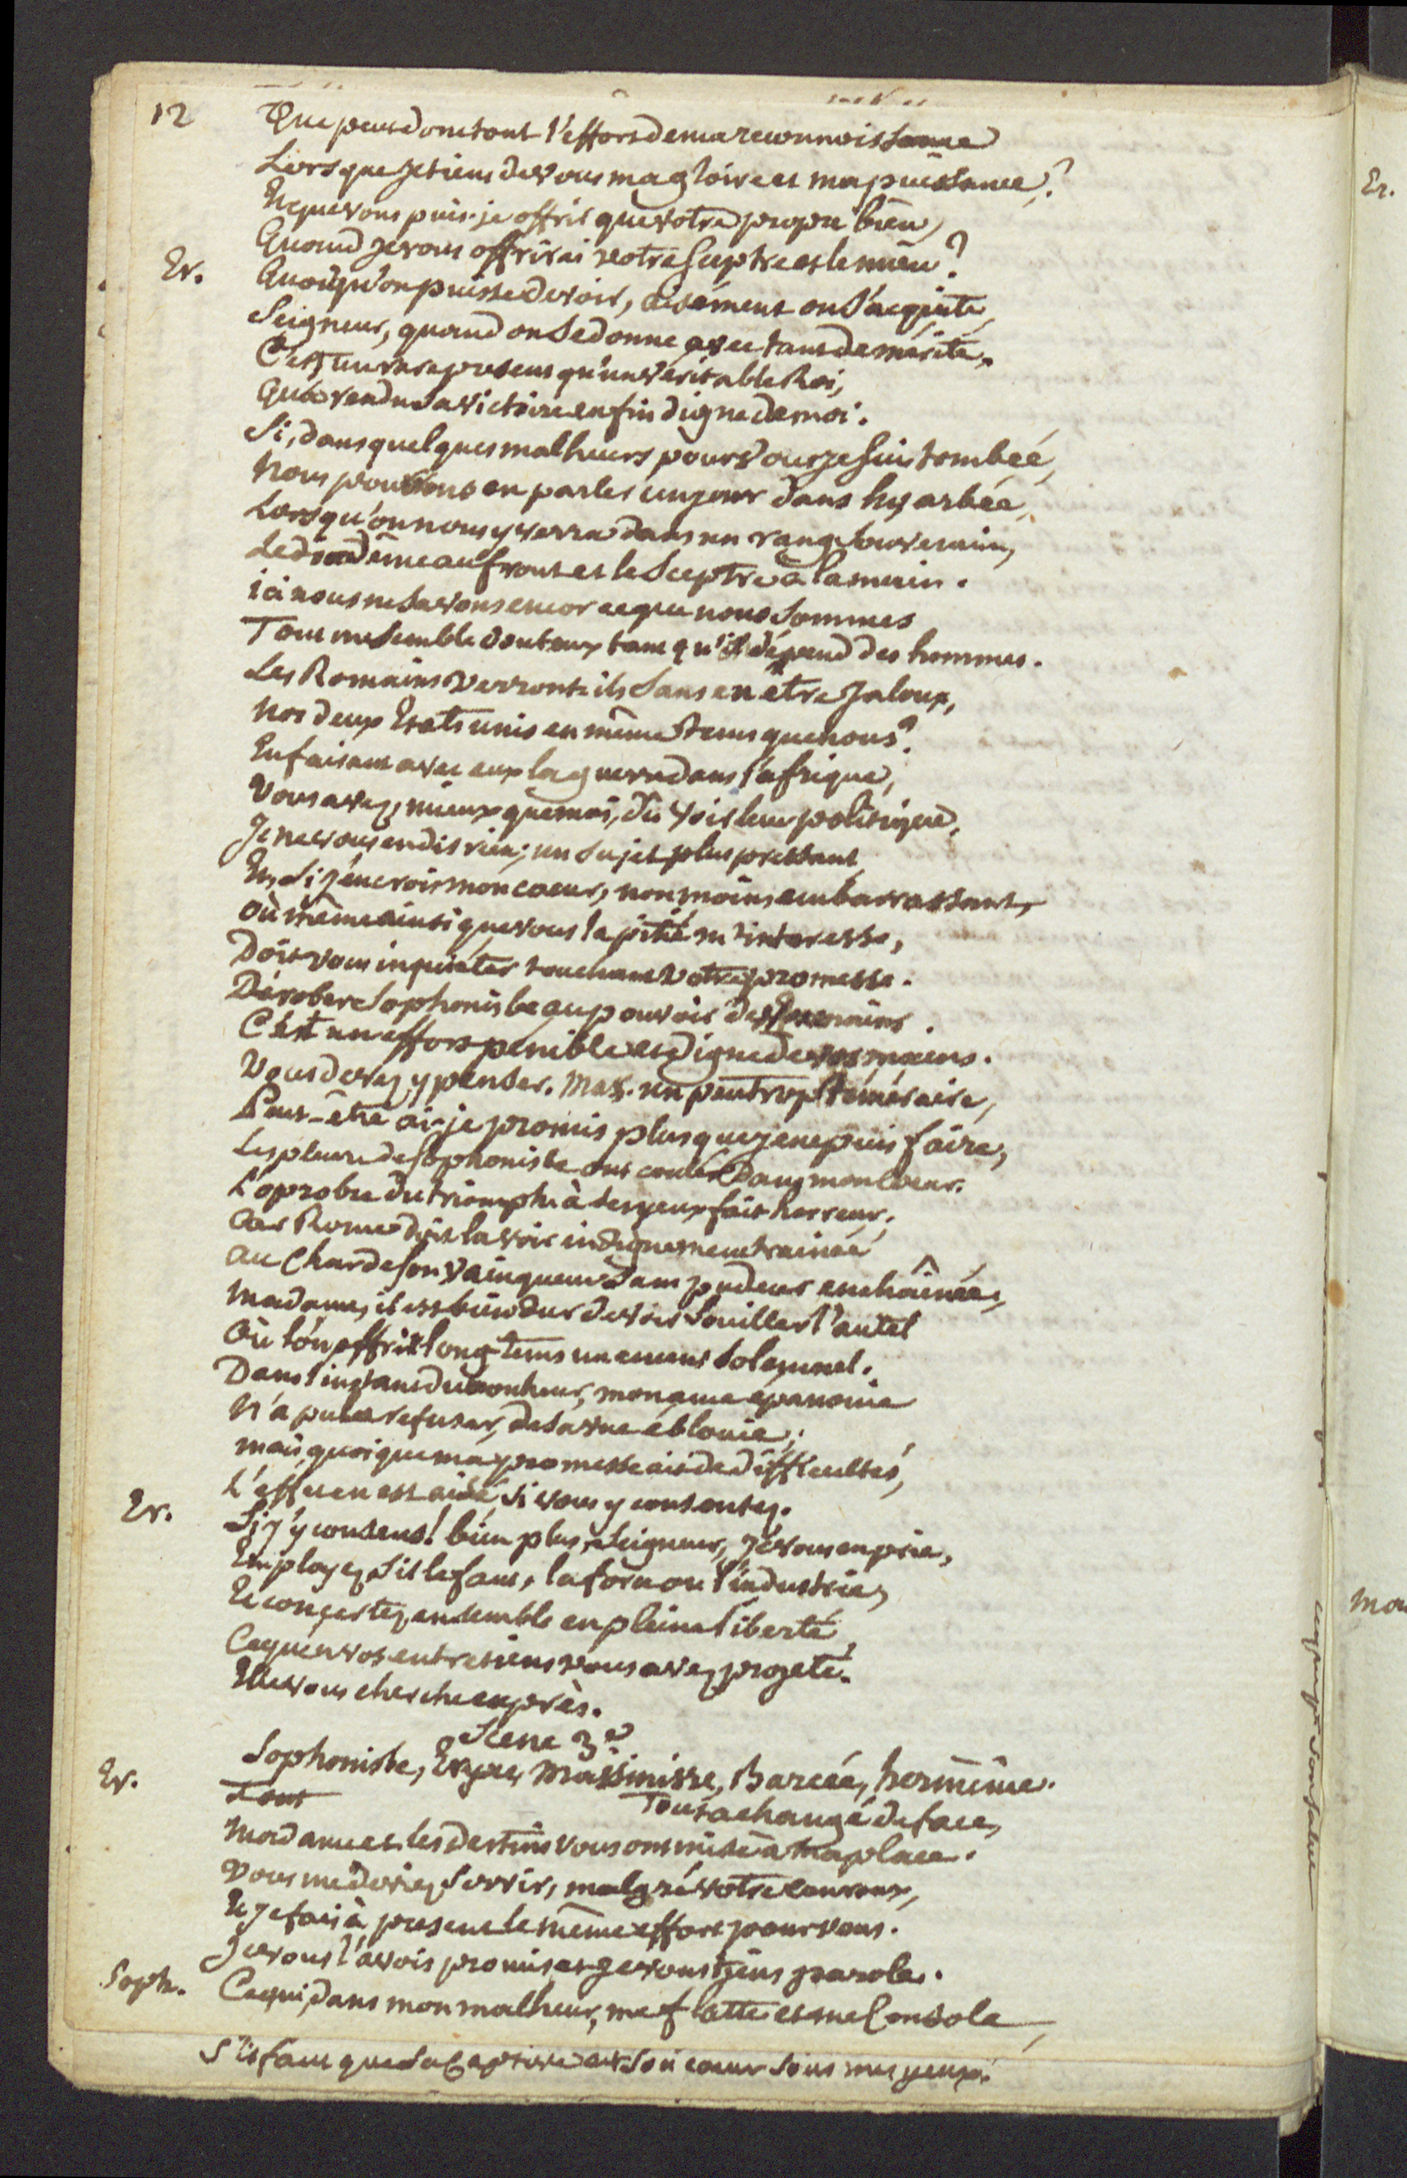 12
Que peut donc tout l'effort de ma reconnoissance
Lorsque je tiens de vous ma gloire et ma puissance?
Et que vous puis-je offrir que votre propre bien,
Quand je vous offrirai votre sceptre et le mien?
Er. Quoiqu'on puisse devoir, aisément on s'acquite,
Seigneur, quand on se donne avec tant de mérite,
C'est un rare present qu'un véritable Roi,
Qu'a rendu sa victoire enfin digne de moi.
Si, dans quelques malheurs pour vous je suis tombée,
Nous pourrons en parler un jour dans hyarbée,
Lorsqu'on nous y verra dans un rang souverain,
Le diadême au front et le Sceptre à la main.
ici nous ne savons encor ce que nous sommes
Tout me semble douteux tant qu'il dépend des hommes.
Les Romains verront-ils sans en être jaloux,
Nos deux Etats unis en même tems que nous?
En faisant avec eux la guerre dans l'afrique,
Vous avez, mieux que moi, dû voir leur politique,
Je ne vous en dis rien; un sujet plus pressant
Et, si j'en crois mon coeur, non moins embarrassant,
où même ainsi que vous la pitié m'interesse,
Doit vous inquiéter touchant votre promesse.
Dérober Sophonisbe au pouvoir des Romains.
C'est un effort penible et digne de vos mains.
Vous devez y penser. Mas. un peu trop téméraire,
Peut-être ai-je promis plus que je ne puis faire,
Les pleurs de Sophonisbe ont coulé dans mon coeur.
L'oprobre du triomphe à ses yeux fait horreur;
Car Rome doit la voir indignement trainée
au Char de son vainqueur sans pudeur enchâinée,
Madame, il est bien dur de voir souiller l'autel
Où l'on offrit long-tems un encens solemnel.
Dans l'instant du bonheur, mon ame epanouie
N'a pu la refuser, de sa vue éblouie;
mais, quoique ma promesse ait de difficultés,
L'effet en est aisé, si vous y consentez.
Er. Si j'y consens! bien plus, Seigneur, je vous en prie,
Employez, s'il le faut, la force ou l'industrie,
Et concertez ensemble en pleine liberté,
Ce qu'en vos entretiens vous avez projeté.
Elle vous cherche exprès.
Scene 3e
Sophonisbe, Eryxe, Massinisse, Barcée, herminie.
Er. Tout
Tout a changé de face,
Madame et les destins vous ont mise à ma place.
Vous me deviez servir, malgré votre couroux,
Et je fais à present le même effort pour vous.
Je vous l'avois promis et je vous tiens parole.
Soph. Ce qui, dans mon malheur, me flatte et me Console,